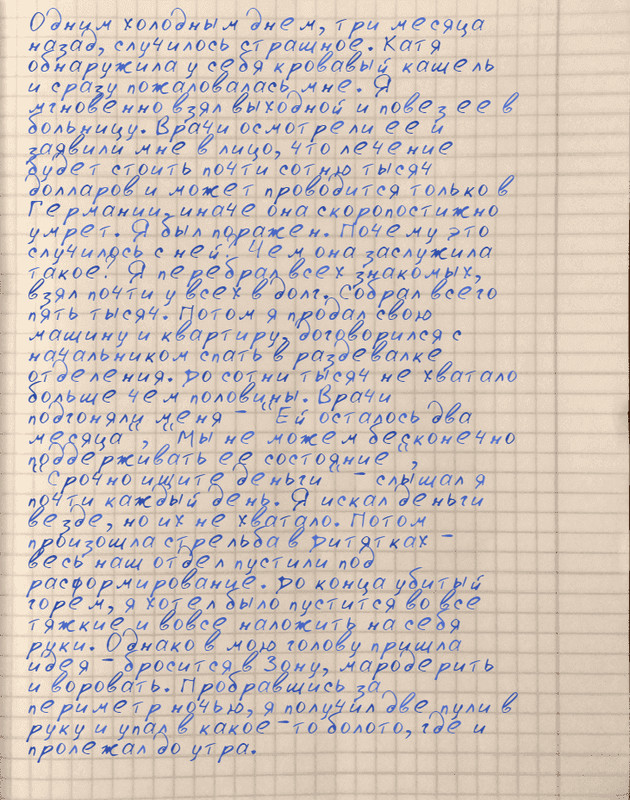 Одним холодным днем, три месяца
назад, случилось страшное. Катя
обнаружила у себя кровавый кашель
и сразу пожаловалась мне. Я
мгновенно взял выходной и повез ее в
больницу. Врачи осмотрели ее и
заявили мне в лицо, что лечение
будет стоить почти сотню тысяч
долларов и может проводится только в
Германии, иначе она скоропостижно
умрет. Я был поражен. Почему это
случилось с ней? Чем она заслужила
такое? Я перебрал всех знакомых,
взял почти у всех в долг. Собрал всего
пять тысяч. Потом я продал свою
машину и квартиру, договорился с
начальником спать в раздевалке
отделения. До сотни тысяч не хватало
больше чем половины. Врачи
подгоняли меня – "Ей осталось два
месяца", "Мы не можем бесконечно
поддерживать ее состояние",
"Срочно ищите деньги" – слышал я
почти каждый день. Я искал деньги
везде, но их не хватало. Потом
произошла стрельба в Дитятках –
весь наш отдел пустили под
расформирование. До конца убитый
горем, я хотел было пустится во все
тяжкие и вовсе наложить на себя
руки. Однако в мою голову пришла
идея – бросится в Зону, мародерить
и воровать. Пробравшись за
периметр ночью, я получил две пули в
руку и упал в какое-то болото, где и
пролежал до утра.